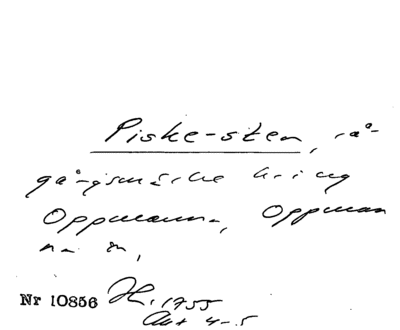 Piske-sten, rå-
gångsmärke kring
Oppmanna, Oppman
na sn,
Nr 10856 H. 1755
Akt 4-5